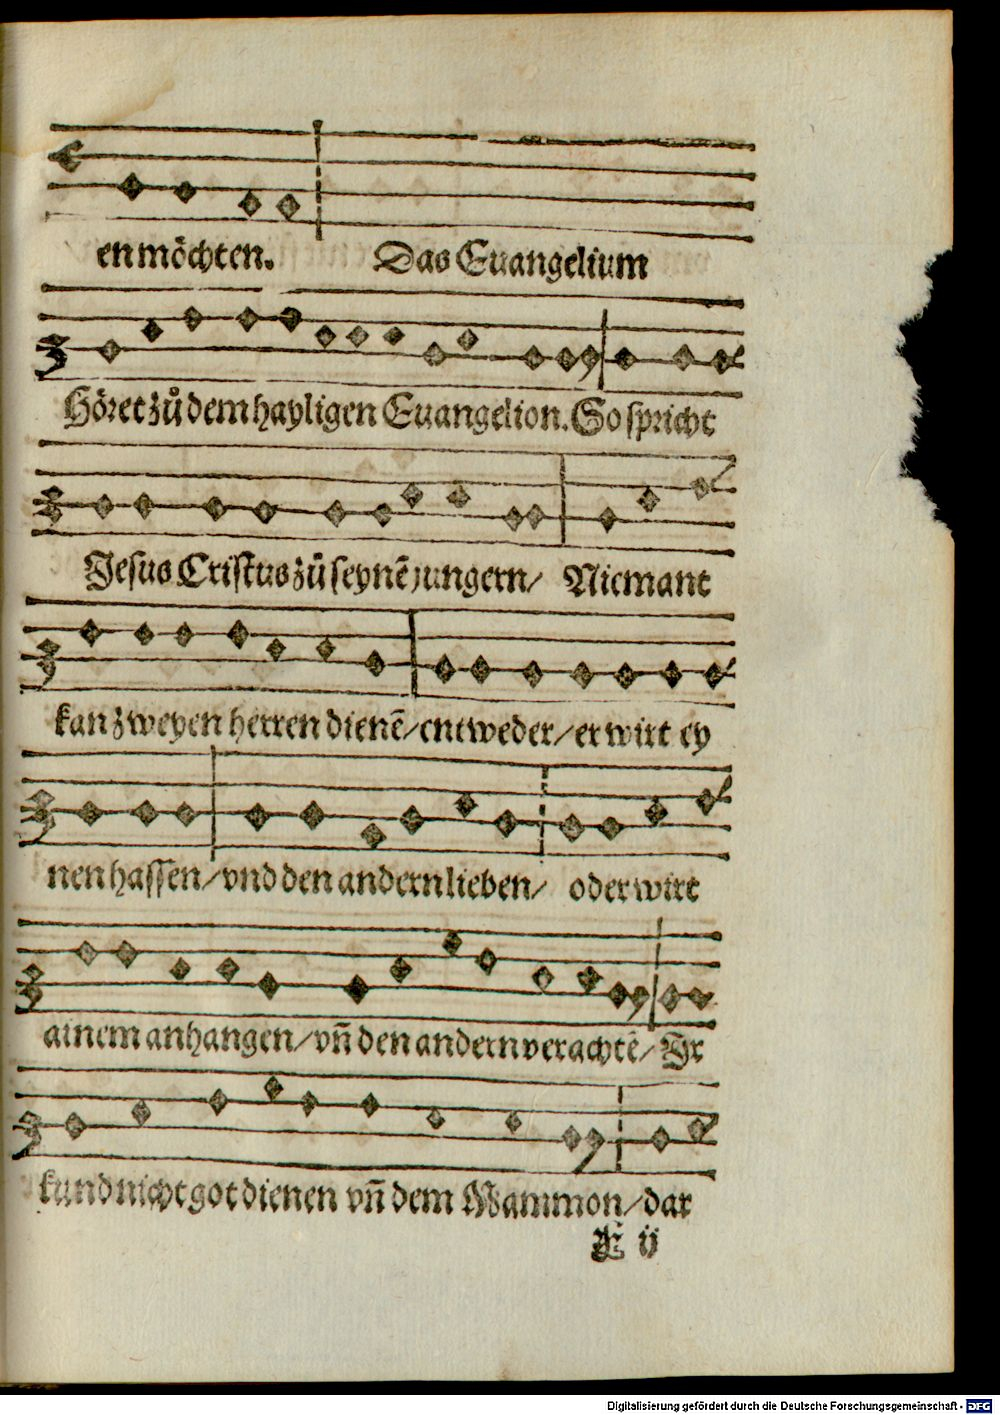 en möchten. Das Euangelium
Höret zů dem hayligen Euangelion. So spricht
Jesus Cristus zů seynē jungern/ Niemant
kan zweyen herren dienē/ entweder/ er wirt ey
nen hassen/ vnd den andern lieben/ oder wirt
ainem anhangen/ vñ den andern verachtē/ Jr
kund nicht got dienen vñ dem Mammon/ dar
ij
Digitalisierung gefördert durch die Deutsche Forschungsgemeinschaft - DFG